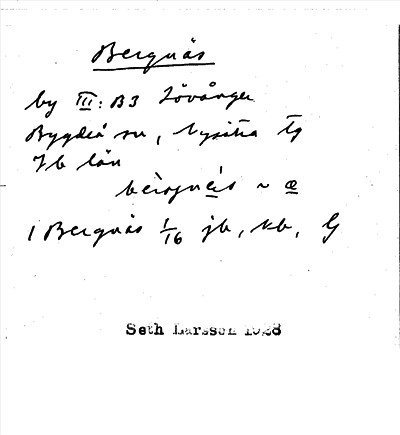 Bergnäs
by III: B3 Lövånger
Bygdeå sn, Nysätra tg
Vb län
~ æ
1 Bergnäs 1/16 jb, kb, G
Seth Larsson 1928